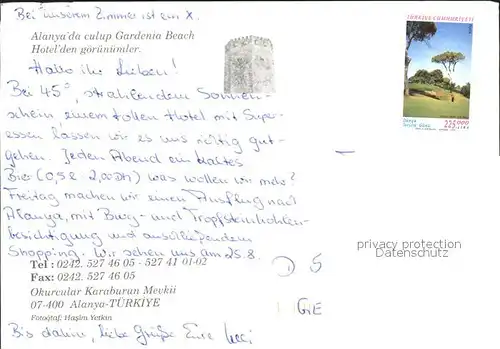 Bei unserem Zimmer ist ein X.
Alanya'da culup Gardenia Beach
Hotel'den görünümler.
Hallo ihr Lieben!
Bei 45°, strahlendem Sonnen-
schein einem tollen Hotel mit Super-
essen lassen wir es uns richtig gut-
gehen. Jeden Abend ein kaltes
Bier (0,5 l 2,00 DM) was wollen wir mehr?
Freitag machen wir einen Ausflug nach
Alanya, mit Burg- und Tropfsteinhöhlen-
besichtigung und anschließendem
Shopping. Wir sehen uns am 25.8.
Tel : 0242. 527 46 05 - 527 41 01-02
Fax: 0242. 527 46 05
Okurcular Karaburun Mevkii
07-400 Alanya-TÜRKİYE
Fotoğraf: Haşim Yetkin
Bis dahin, liebe Grüße Eure
TÜRKİYE CUMHURİYETİ
225.000
privacy protection
Datenschutz
D S
GE